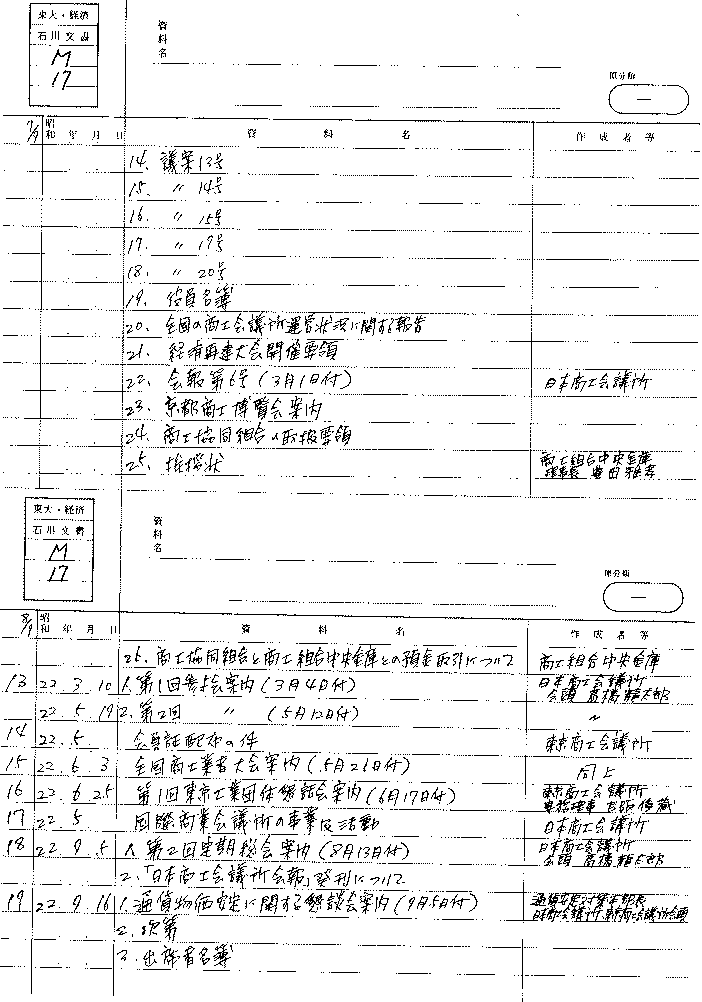 東大・経済
石川文書
M
17
資料名
原分類
一
7/9 昭和 年 月 日 資料名 作成者等
14. 議案13号
15. 〃 14号
16. 〃 15号
17. 〃 17号
18. 〃 20号
19. 役員名簿
20. 全国の商工会議所運営状況に関する報告
21. 経済再建大会開催要領
22. 会報第6号(3月1日付) 日本商工会議所
23. 京都商工博覧会案内
24. 商工協同組合の取扱要領
25. 挨拶状 商工組合中央金庫
理事長 豊田雅孝
東大・経済
石川文書
M
17
資料名
原分類
一
8/9 昭和 年 月 日 資料名 作成者等
26. 商工協同組合と商工組合中央金庫との預金取引について 商工組合中央金庫
13 22 3 10 1. 第1回参与会案内(3月4日付) 日本商工会議所
会頭 高橋龍太郎
22 5 19 2. 第2回 〃 (5月12日付) 〃
14 22 5 会員証配布の件 東京商工会議所
15 22 6 3 全国商工業者大会案内(5月26日付) 同上
16 22 6 25 第1回東京工業団体懇話会案内(6月17日付) 東京商工会議所
専務理事
17 22 5 国際商業会議所の事業及活動 日本商工会議所
18 22 9 5 1. 第2回定期総会案内(8月13日付) 日本商工会議所
会頭 高橋龍太郎
2.「日本商工会議所会報」発刊について
19 22 9 16 1. 通貨物価安定に関する懇談会案内(9月5日付) 通貨安定対策本部長
日本商工会議所 東京商工会議所会頭
2. 次第
3. 出席者名簿